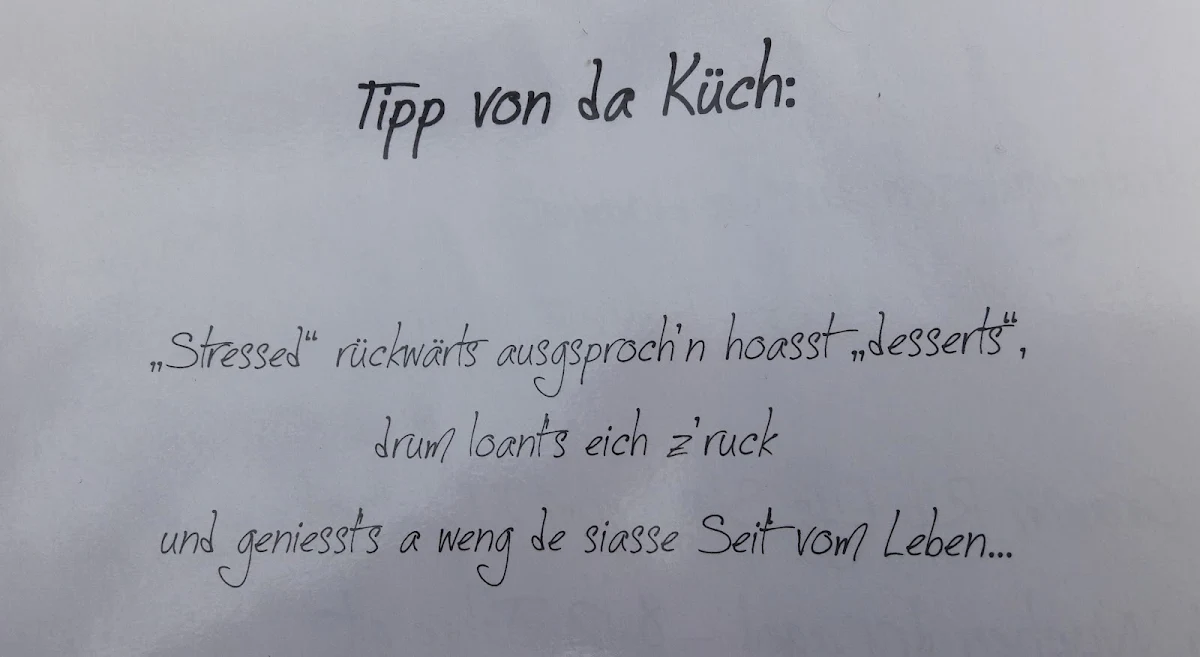 Tipp von da Küch:
„Stressed“ rückwärts ausgsproch'n hoasst „desserts“,
drum loant's eich z'ruck
und geniesst's a weng de siasse Seit vom Leben...